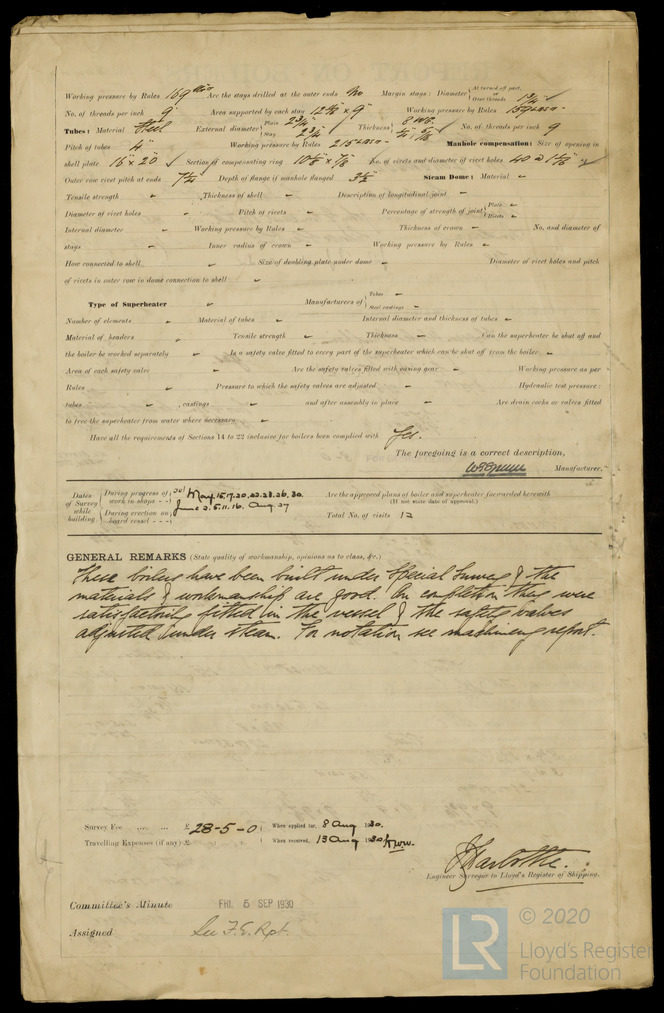 Working pressure by Rules 169 lbs Are the stays drilled at the outer ends No Margin stays: Diameter { At turned off part, or Over threads 1 3/4"
No. of threads per inch 9 Area supported by each stay Working pressure by Rules
Tubes: Material Steel External diameter { Plain 2 3/4" Stay 2 3/4" Thickness { 8 WG. No. of threads per inch 9
Pitch of tubes 4" Working pressure by Rules 215 Manhole compensation: Size of opening in
shell plate 16" x 20" Section of compensating ring No. of rivets and diameter of rivet holes 40
Outer row rivet pitch at ends Depth of flange if manhole flanged Steam Dome: Material -
Tensile strength - Thickness of shell - Description of longitudinal joint -
Diameter of rivet holes - Pitch of rivets - Percentage of strength of joint { Plate - Rivets -
Internal diameter - Working pressure by Rules - Thickness of crown - No. and diameter of
stays - Inner radius of crown - Working pressure by Rules -
How connected to shell - Size of doubling plate under dome - Diameter of rivet holes and pitch
of rivets in outer row in dome connection to shell -
Type of Superheater - Manufacturers of { Tubes - Steel castings -
Number of elements - Material of tubes - Internal diameter and thickness of tubes -
Material of headers - Tensile strength - Thickness - Can the superheater be shut off and
the boiler be worked separately - Is a safety valve fitted to every part of the superheater which can be shut off from the boiler -
Area of each safety valve - Are the safety valves fitted with easing gear - Working pressure as per
Rules - Pressure to which the safety valves are adjusted - Hydraulic test pressure:
tubes - , castings - and after assembly in place - Are drain cocks or valves fitted
to free the superheater from water where necessary -
Have all the requirements of Sections 14 to 22 inclusive for boilers been complied with Yes.
The foregoing is a correct description,
Manufacturer.
Dates of Survey while building { During progress of work in shops - - May 15.17.20.22.23.26.30. Are the approved plans of boiler and superheater forwarded herewith
(If not state date of approval.)
During erection on board vessel - - - June 2.5.11.16. Aug. 27 Total No. of visits 12
GENERAL REMARKS (State quality of workmanship, opinions as to class, &c.)
These boilers have been built under Special Survey & the
materials & workmanship are good. On completion they were
satisfactorily fitted in the vessel & the safety valves
adjusted under steam. For notation see machinery report.
Survey Fee ... ... £ 28-5-0 When applied for, 8 Aug 1930.
Travelling Expenses (if any) £ When received, 13 Aug 1930
Engineer Surveyor to Lloyd's Register of Shipping.
Committee's Minute FRI. 5 SEP 1930
Assigned See F.E. Rpt.
© 2020
LR Lloyd's Register
Foundation